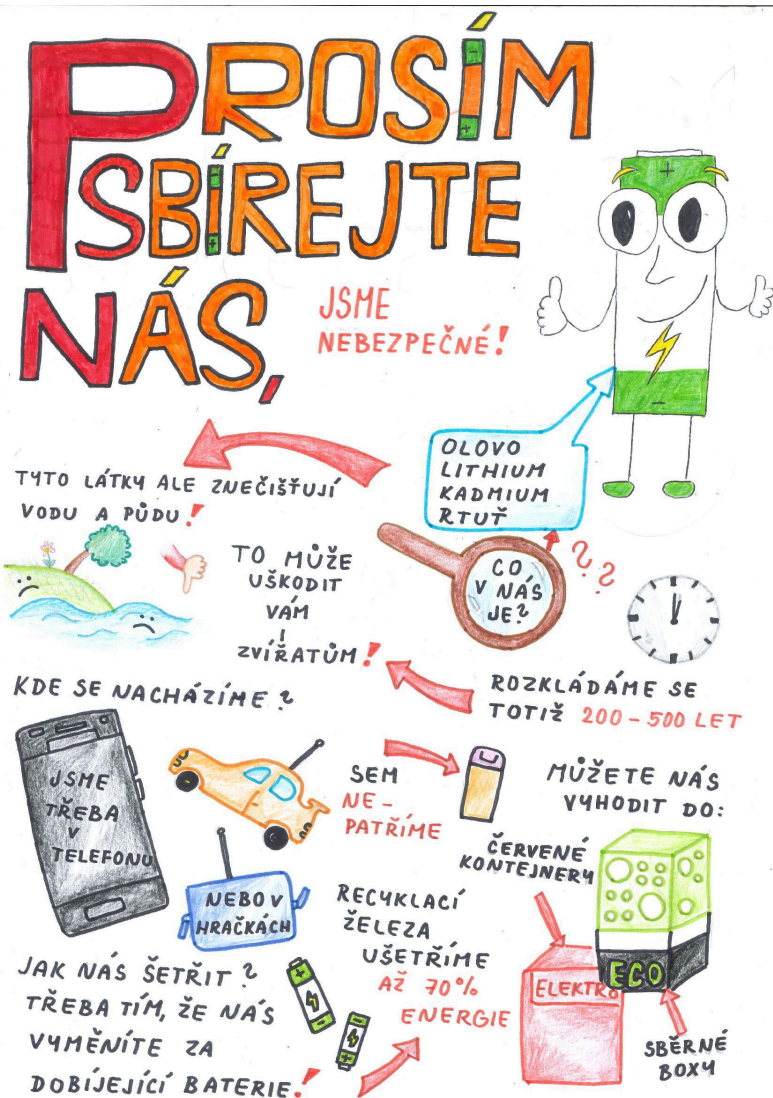 PROSÍM
SBÍREJTE
NÁS,
JSME
NEBEZPEČNÉ!
+
-
OLOVO
LITHIUM
KADMIUM
RTUŤ
CO
V NÁS
JE?
??
TYTO LÁTKY ALE ZNEČIŠŤUJÍ
VODU A PŮDU!
TO MŮŽE
UŠKODIT
VÁM
I
ZVÍŘATŮM!
ROZKLÁDÁME SE
TOTIŽ 200-500 LET
KDE SE NACHÁZÍME?
JSME
TŘEBA
V
TELEFONU
NEBO V
HRAČKÁCH
SEM
NE-
PATŘÍME
MŮŽETE NÁS
VYHODIT DO:
ČERVENÉ
KONTEJNERY
ELEKTRO
ECO
SBĚRNÉ
BOXY
RECYKLACÍ
ŽELEZA
UŠETŘÍME
AŽ 70%
ENERGIE
JAK NÁS ŠETŘIT?
TŘEBA TÍM, ŽE NÁS
VYMĚNÍTE ZA
DOBÍJEJÍCÍ BATERIE!